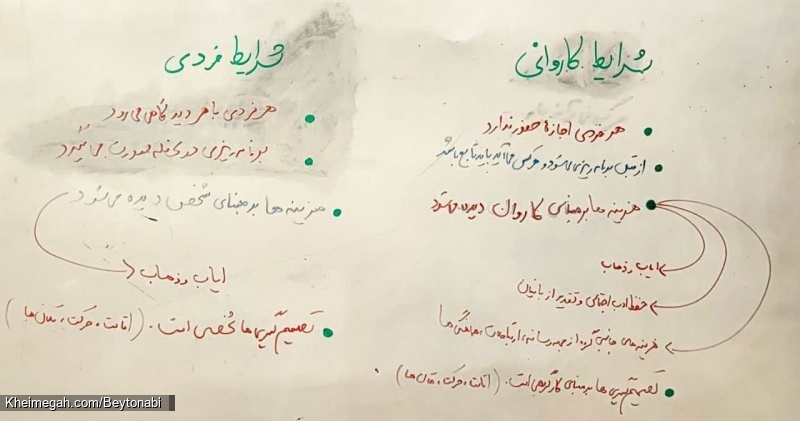 شرایط کاروانی
هر فردی اجازهٔ حضور ندارد
از قبل برنامه ریزی می‌شود و هرکس می‌آید باید تابع باشد
هزینه ها بر مبنای کاروان دیده می‌شود
ایاب و ذهاب
حفظ ادب اجتماعی و تقدیر از بانیان
هزینه های جانبی گروه از جمله رسانه، ارتباطات، هماهنگی ها
تصمیم گیری ها بر مبنای کار گروهی است. (اقامت، حرکت، مکان ها)
شرایط فردی
هر فردی با هر دیدگاهی می رود
برنامه ریزی در لحظه صورت می گیرد
هزینه ها بر مبنای شخص دیده می شود
ایاب و ذهاب
تصمیم گیری ها شخصی است. (اقامت، حرکت، مکان ها)
Kheimegah.com/Beytonabi